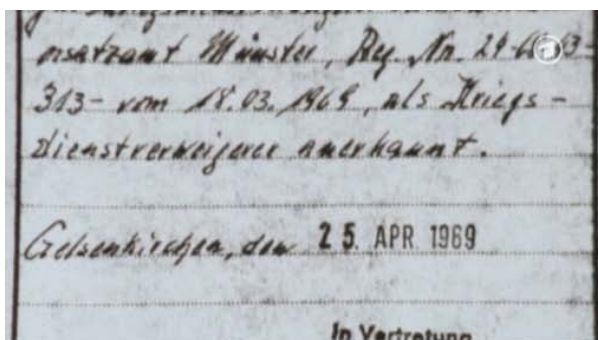 ersatzamt Münster, Reg. Nr.
313- vom 18.03.1969, als Kriegs-
dienstverweigerer anerkannt.
Gelsenkirchen, den 25. APR. 1969
In Vertretung